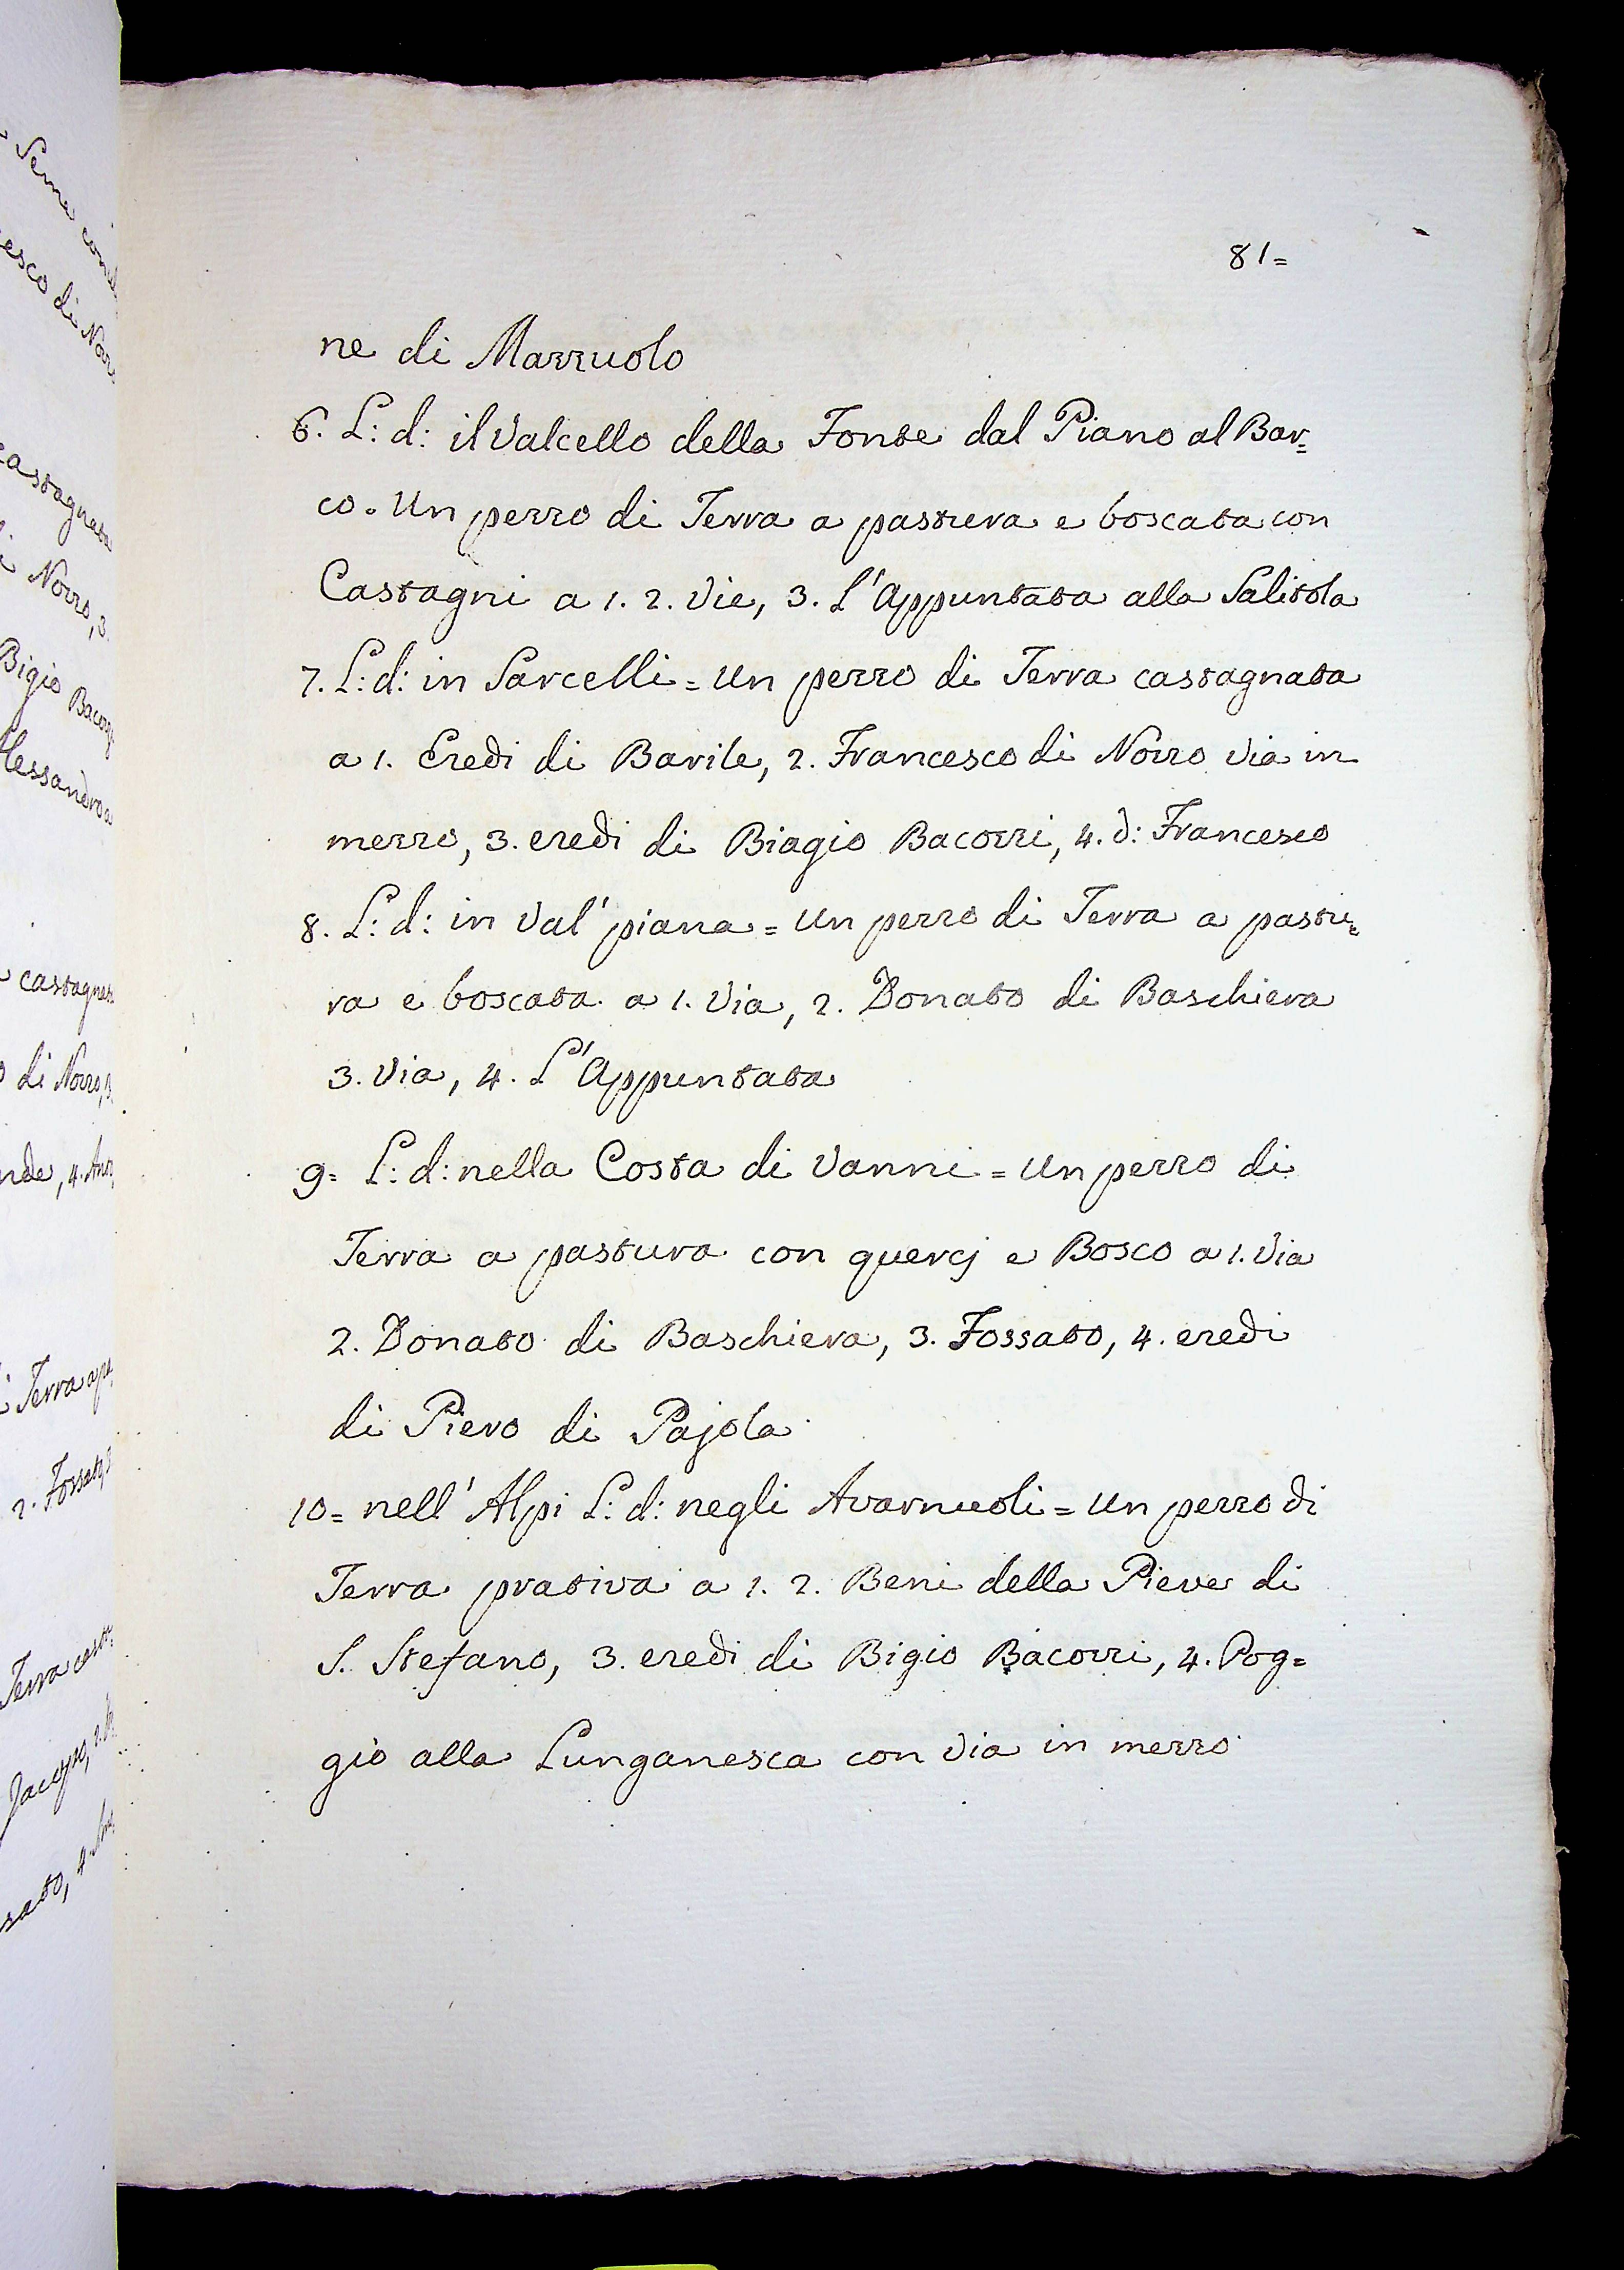 81=
ne di Mazzuolo
6. L: d: il Valcello della Fonte dal Piano al Bar=
co. Un pezzo di Terra a pastura e boscata con
Castagni a 1. 2. Vie, 3. L'Appuntata alla Salitola
7. L: d: in Sarcelli = Un pezzo di Terra castagnata
a 1. Eredi di Barile, 2. Francesco di Nozzo Via in
mezzo, 3. eredi di Biagio Bacozzi, 4. d: Francesco
8. L: d: in Val' piana = Un pezzo di Terra a pastu=
ra e boscata a 1. Via, 2. Donato di Baschiera
3. Via, 4. L'Appuntata
9= L: d: nella Costa di Vanni = Un pezzo di
Terra a pastura con quercj e Bosco a 1. Via
2. Donato di Baschiera, 3. Fossato, 4. eredi
di Piero di Pajola
10= nell' Alpi L: d: negli Avarnuoli = Un pezzo di
Terra prativa a 1. 2. Beni della Pieve di
S. Stefano, 3. eredi di Bigio Bacozzi, 4. Pog=
gio alla Lunganesca con Via in mezzo